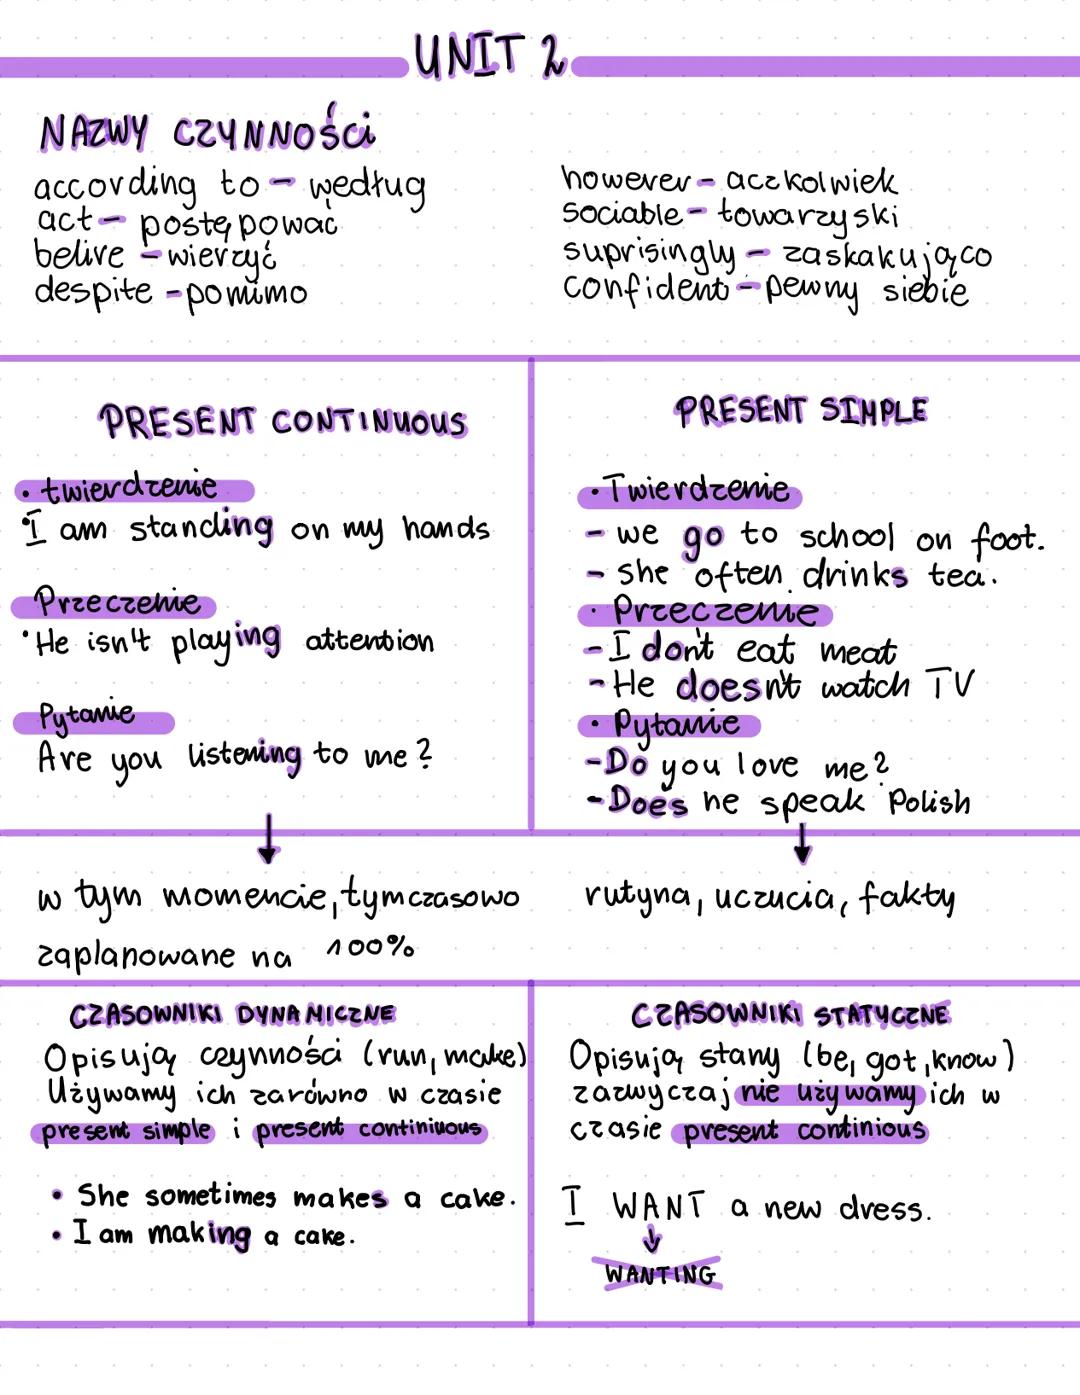 UNIT 2
NAZWY CZYNNOŚCI
according to - według
act - postępować
belire - wierzyć
despite - pomimo
however - aczkolwiek
sociable - towarzyski
suprisingly - zaskakująco
confident - pewny siebie
PRESENT CONTINUOUS
• twierdzenie
• I am standing on my hands
Przeczenie
• He isn't playing attention
Pytanie
Are you listening to me?
PRESENT SIMPLE
• Twierdzenie
- we go to school on foot.
- she often drinks tea.
• Przeczenie
- I don't eat meat
- He doesn't watch TV
• Pytanie
- Do you love me?
- Does he speak Polish
w tym momencie, tymczasowo
zaplanowane na 100%
rutyna, uczucia, fakty
CZASOWNIKI DYNAMICZNE
Opisują czynności (run, make)
Używamy ich zarówno w czasie
present simple i present continiuous
• She sometimes makes a cake.
• I am making a cake.
CZASOWNIKI STATYCZNE
Opisują stany (be, got, know)
zazwyczaj nie używamy ich w
czasie present continious
I WANT a new dress.
WANTING